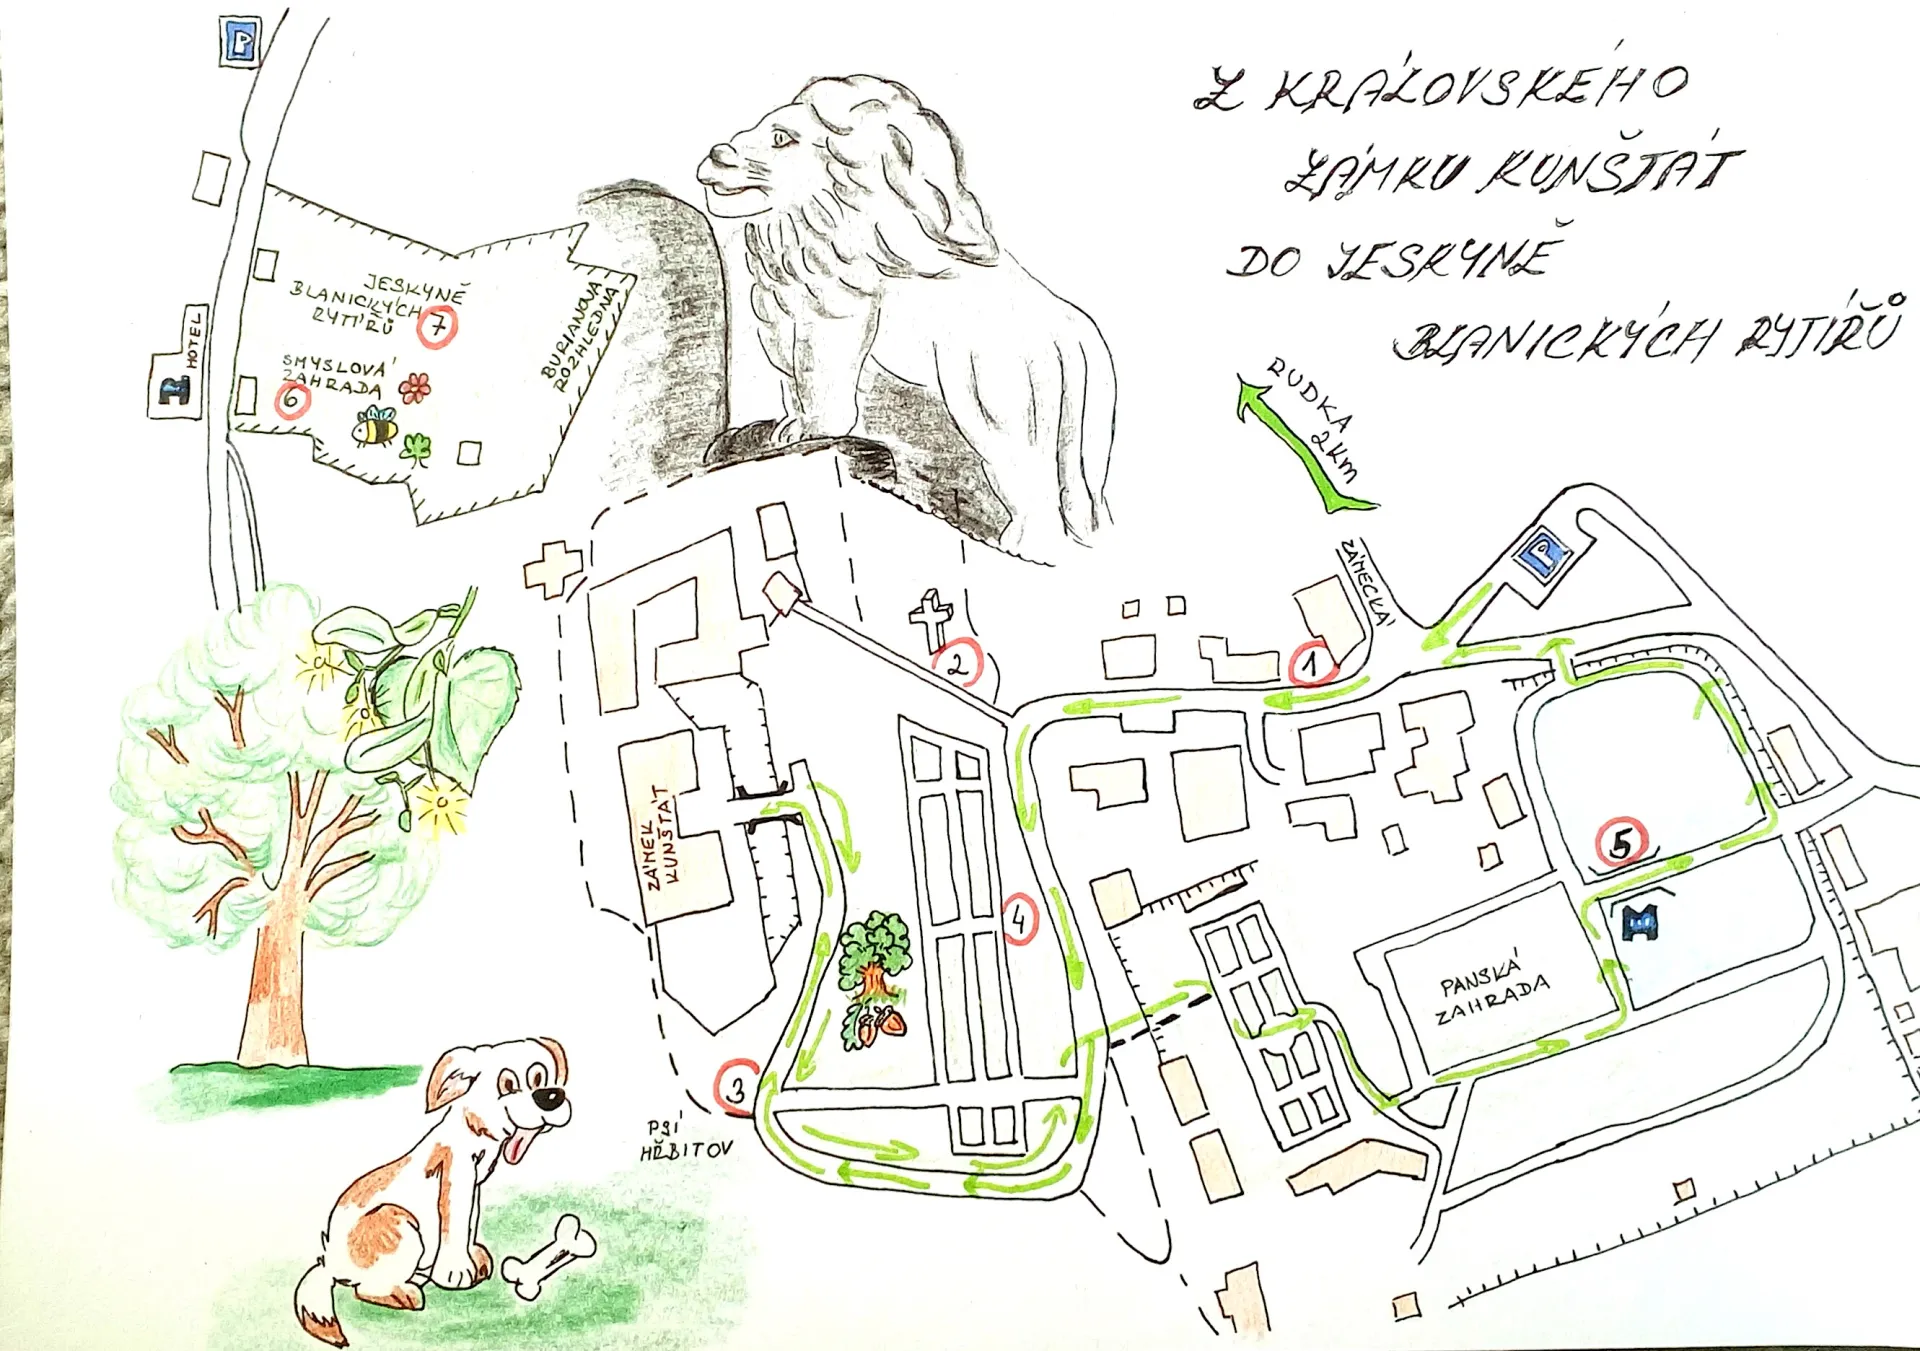 Z KRÁLOVSKÉHO
ZÁMKU KUNŠTÁT
DO JESKYNĚ
BLANICKÝCH RYTÍŘŮ
P
JESKYNĚ
BLANICKÝCH
RYTÍŘŮ
7
SMYSLOVÁ
ZAHRADA
6
BURIANOVA
ROZHLEDNA
HOTEL
RUDKA
2km
ZÁMECKÁ
P
1
2
ZÁMEK
KUNŠTÁT
3
4
5
PANSKÁ
ZAHRADA
PSÍ
HŘBITOV